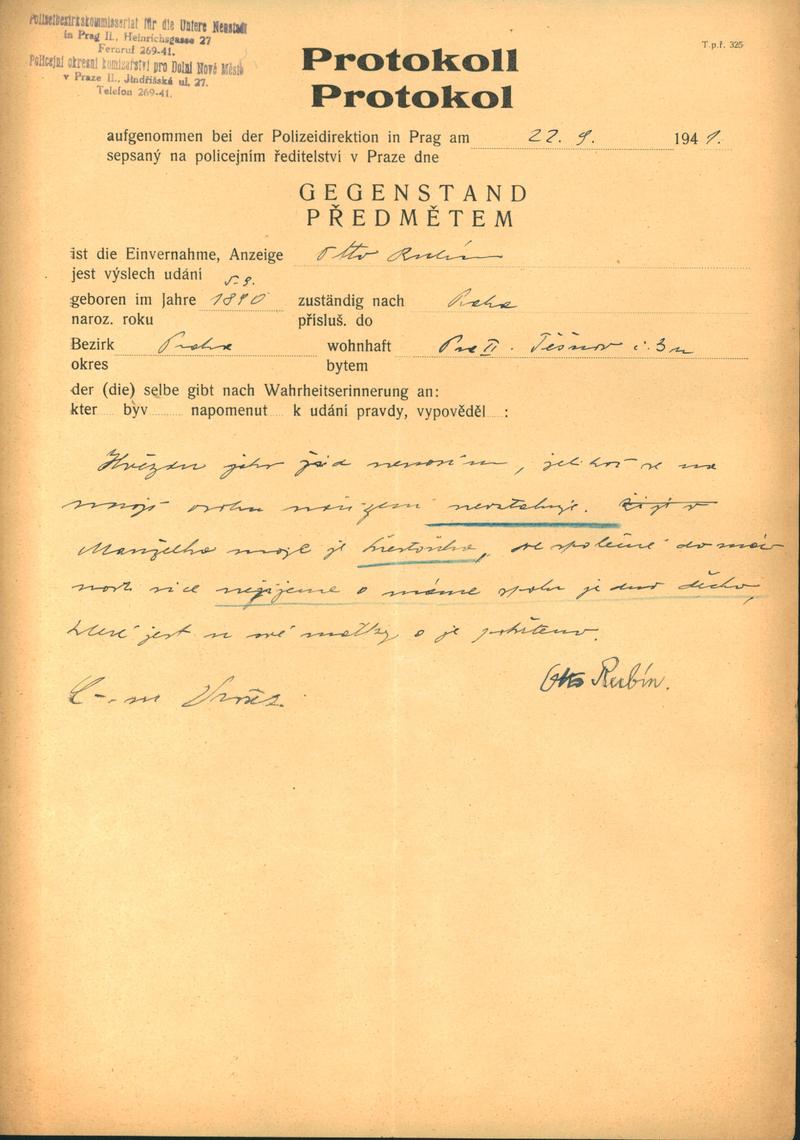 Polizeibezirkskommissariat für die Untere Neustadt
in Prag II., Heinrichsgasse 27
Fernruf 269-41.
Policejní okresní komisařství pro Dolní Nové Město
v Praze II., Jindřišská ul. 27.
Telefon 269-41.
T.p.ř. 325
Protokoll
Protokol
aufgenommen bei der Polizeidirektion in Prag am 22. 9. 1941.
sepsaný na policejním ředitelství v Praze dne
GEGENSTAND
PŘEDMĚTEM
ist die Einvernahme, Anzeige Otto Rubín
jest výslech udání
5.9.
geboren im Jahre 1890 zuständig nach Praha
naroz. roku přísluš. do
Bezirk Praha wohnhaft Praha II. Těšnov č. 3 n
okres bytem
der (die) selbe gibt nach Wahrheitserinnerung an:
kter byv napomenut k udání pravdy, vypověděl :
Hvězdu jako žid nenosím, jelikož se na
moji osobu nařízení nevztahuje. Žiji v
Manželka moje je křesťanka, ve společné domác-
nosti sice nežijeme a máme spolu jedno děcko,
které jest u své matky a je pokřtěno.
Otto Rubín.